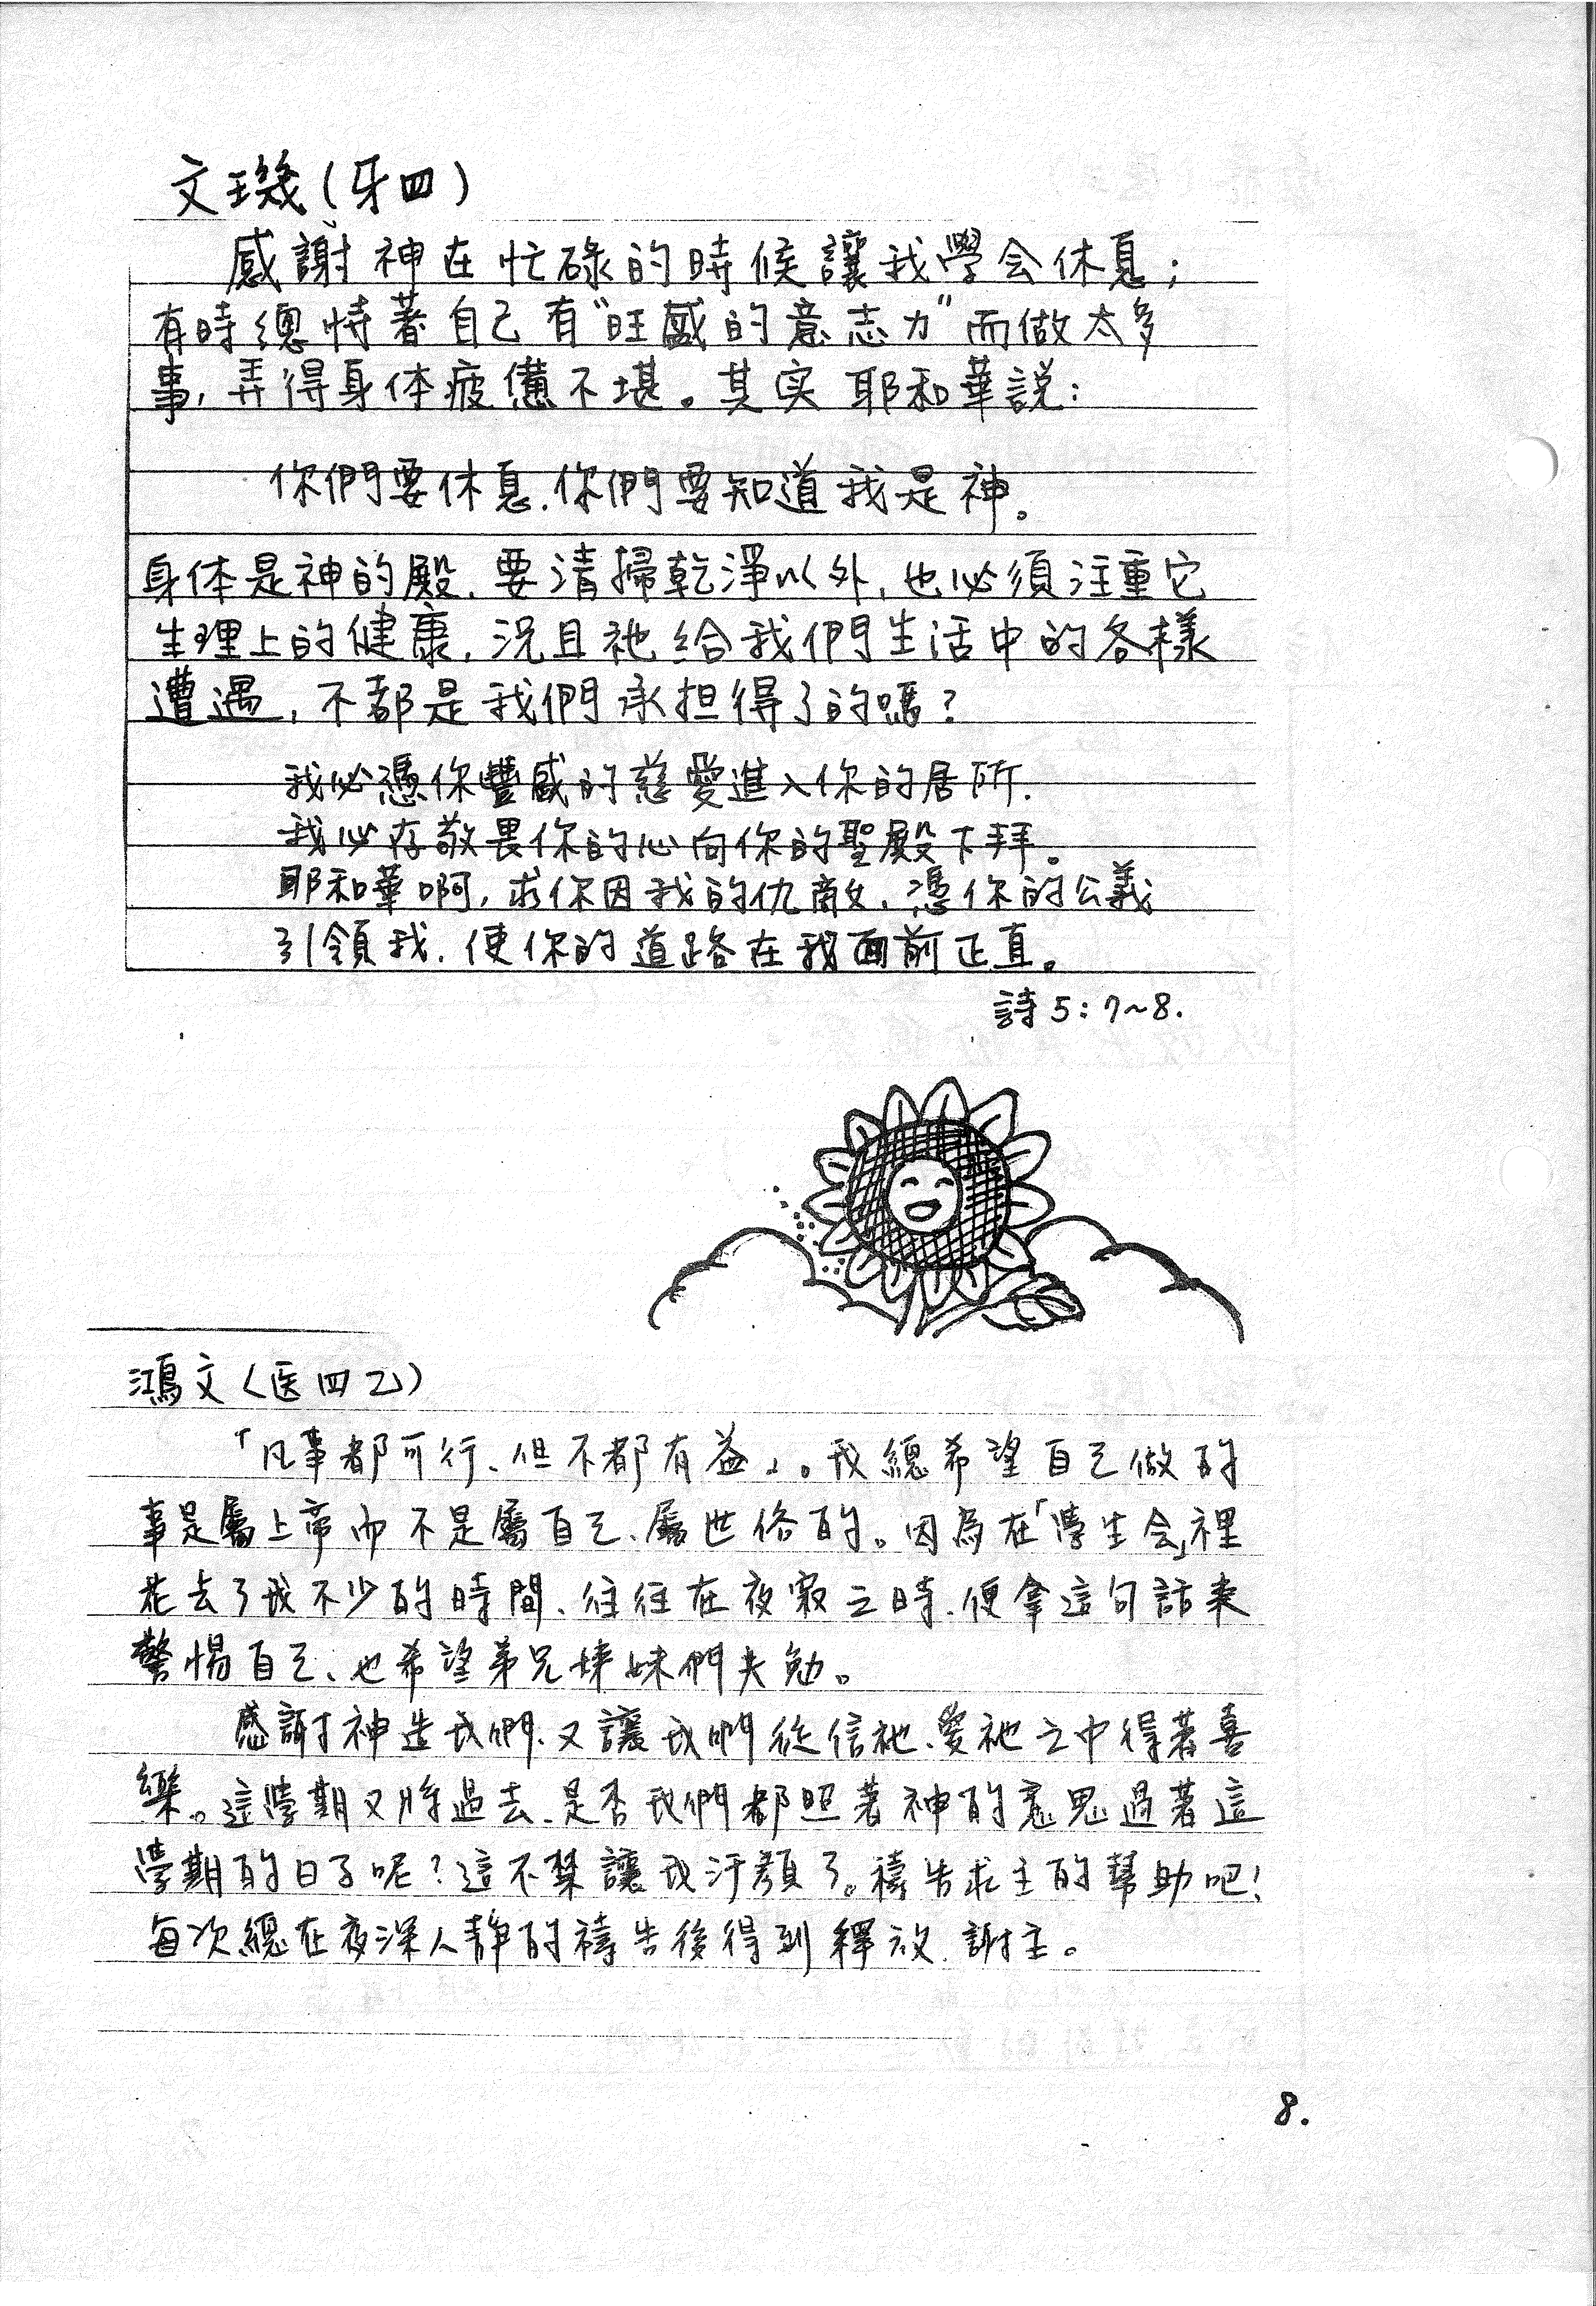 文璣(牙四)
感謝神在忙碌的時候讓我學会休息；
有時總恃著自己有"旺盛的意志力"而做太多
事，弄得身体疲憊不堪。其实耶和華説：
你們要休息.你們要知道我是神。
身体是神的殿.要清掃乾淨以外,也必須注重它
生理上的健康,況且祂給我們生活中的各樣
遭遇,不都是我們承担得了的嗎?
我必憑你豐盛的慈愛進入你的居所.
我必存敬畏你的心向你的聖殿下拜。
耶和華啊,求你因我的仇敵.憑你的公義
引領我.使你的道路在我面前正直。
詩5:7~8.
鴻文〈医四乙〉
「凡事都可行、但不都有益」。我總希望自己做的
事是屬上帝而不是屬自己、屬世俗的。因為在「學生会」裡
花去了我不少的時間、往往在夜寂之時、便拿這句話来
警惕自己、也希望弟兄姊妹們共勉。
感謝神造我們、又讓我們從信祂、愛祂之中得著喜
樂。這學期又將過去、是否我們都照著神的意思過著這
學期的日子呢?這不禁讓我汗顏了。禱告求主的幫助吧!
每次總在夜深人靜的禱告後得到釋放、謝主。
8.